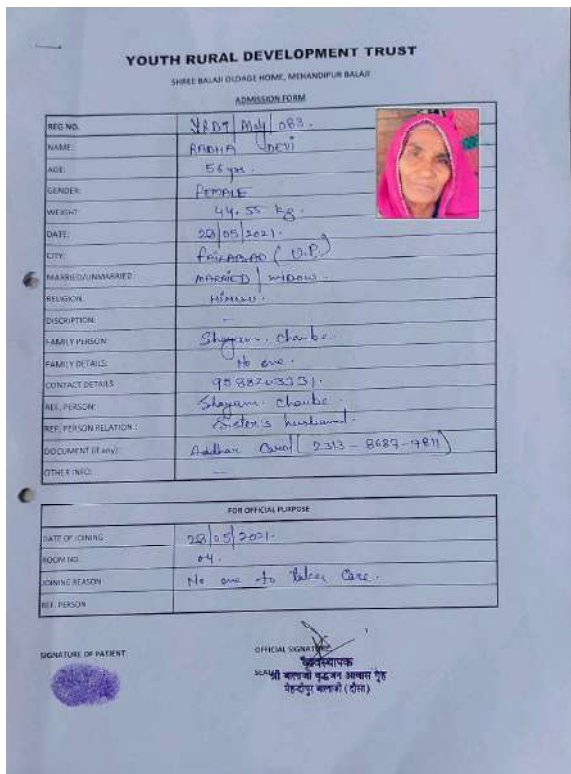 YOUTH RURAL DEVELOPMENT TRUST
SHREE BALAJI OLDAGE HOME, MEHANDIPUR BALAJI
ADMISSION FORM
REG NO. YRDT/May/083.
NAME: RADHA DEVI
AGE: 56 yrs.
GENDER: FEMALE
WEIGHT: 44.55 kg.
DATE: 28/05/2021.
CITY: FAIZABAD (U.P.)
MARRIED/UNMARRIED: MARRIED / WIDOW.
RELIGION: HINDU.
DISCRIPTION: -
FAMILY PERSON: Shayam Choube.
FAMILY DETAILS: No one.
CONTACT DETAILS
REF. PERSON: Shayam Choube
REF. PERSON RELATION.: Sister's husband.
DOCUMENT (if any): Aadhar Card (2313-8687-9811)
OTHER INFO: -
FOR OFFICIAL PURPOSE
DATE OF JOINING 28/05/2021.
ROOM NO. 04.
JOINING REASON No one to take Care.
REF. PERSON
SIGNATURE OF PATIENT
OFFICIAL SIGNATURE
व्यवस्थापक
SEAL श्री बालाजी वृद्धजन आवास गृह
मेहन्दीपुर बालाजी (दौसा)